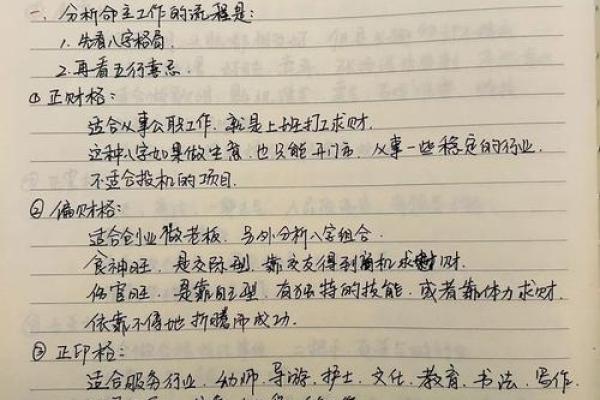 一、分析命主工作的流程是:
1.先看八字格局
2.再看五行喜忌
①正财格:
适合从事公职工作,就是上班打工求财.
这种八字如果做生意,也只能开门市,从事一些稳定的行业.
不适合投机的项目.
②偏财格:
适合创业做老板,另外分析八字组合.
食神旺,是交际型,靠交友得到商机求财.
伤官旺,是靠自立型,有独特的技能,或者靠体力求财.
依靠不停地折腾而成功.
③正印格:
适合服务行业,幼师,导游,护士,文化,教育,书法,写作.